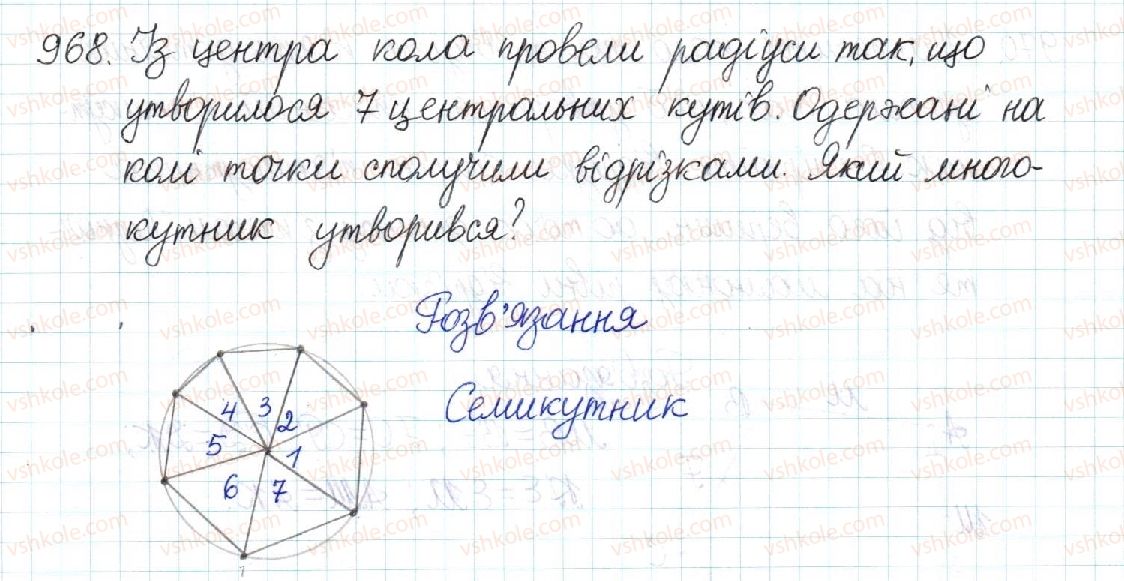 968. Із центра кола провели радіуси так, що
утворилося 7 центральних кутів. Одержані на
колі точки сполучили відрізками. Який много-
кутник утворився?
Розв'язання
Семикутник
4 3 2
5 1
6 7
vshkole.com